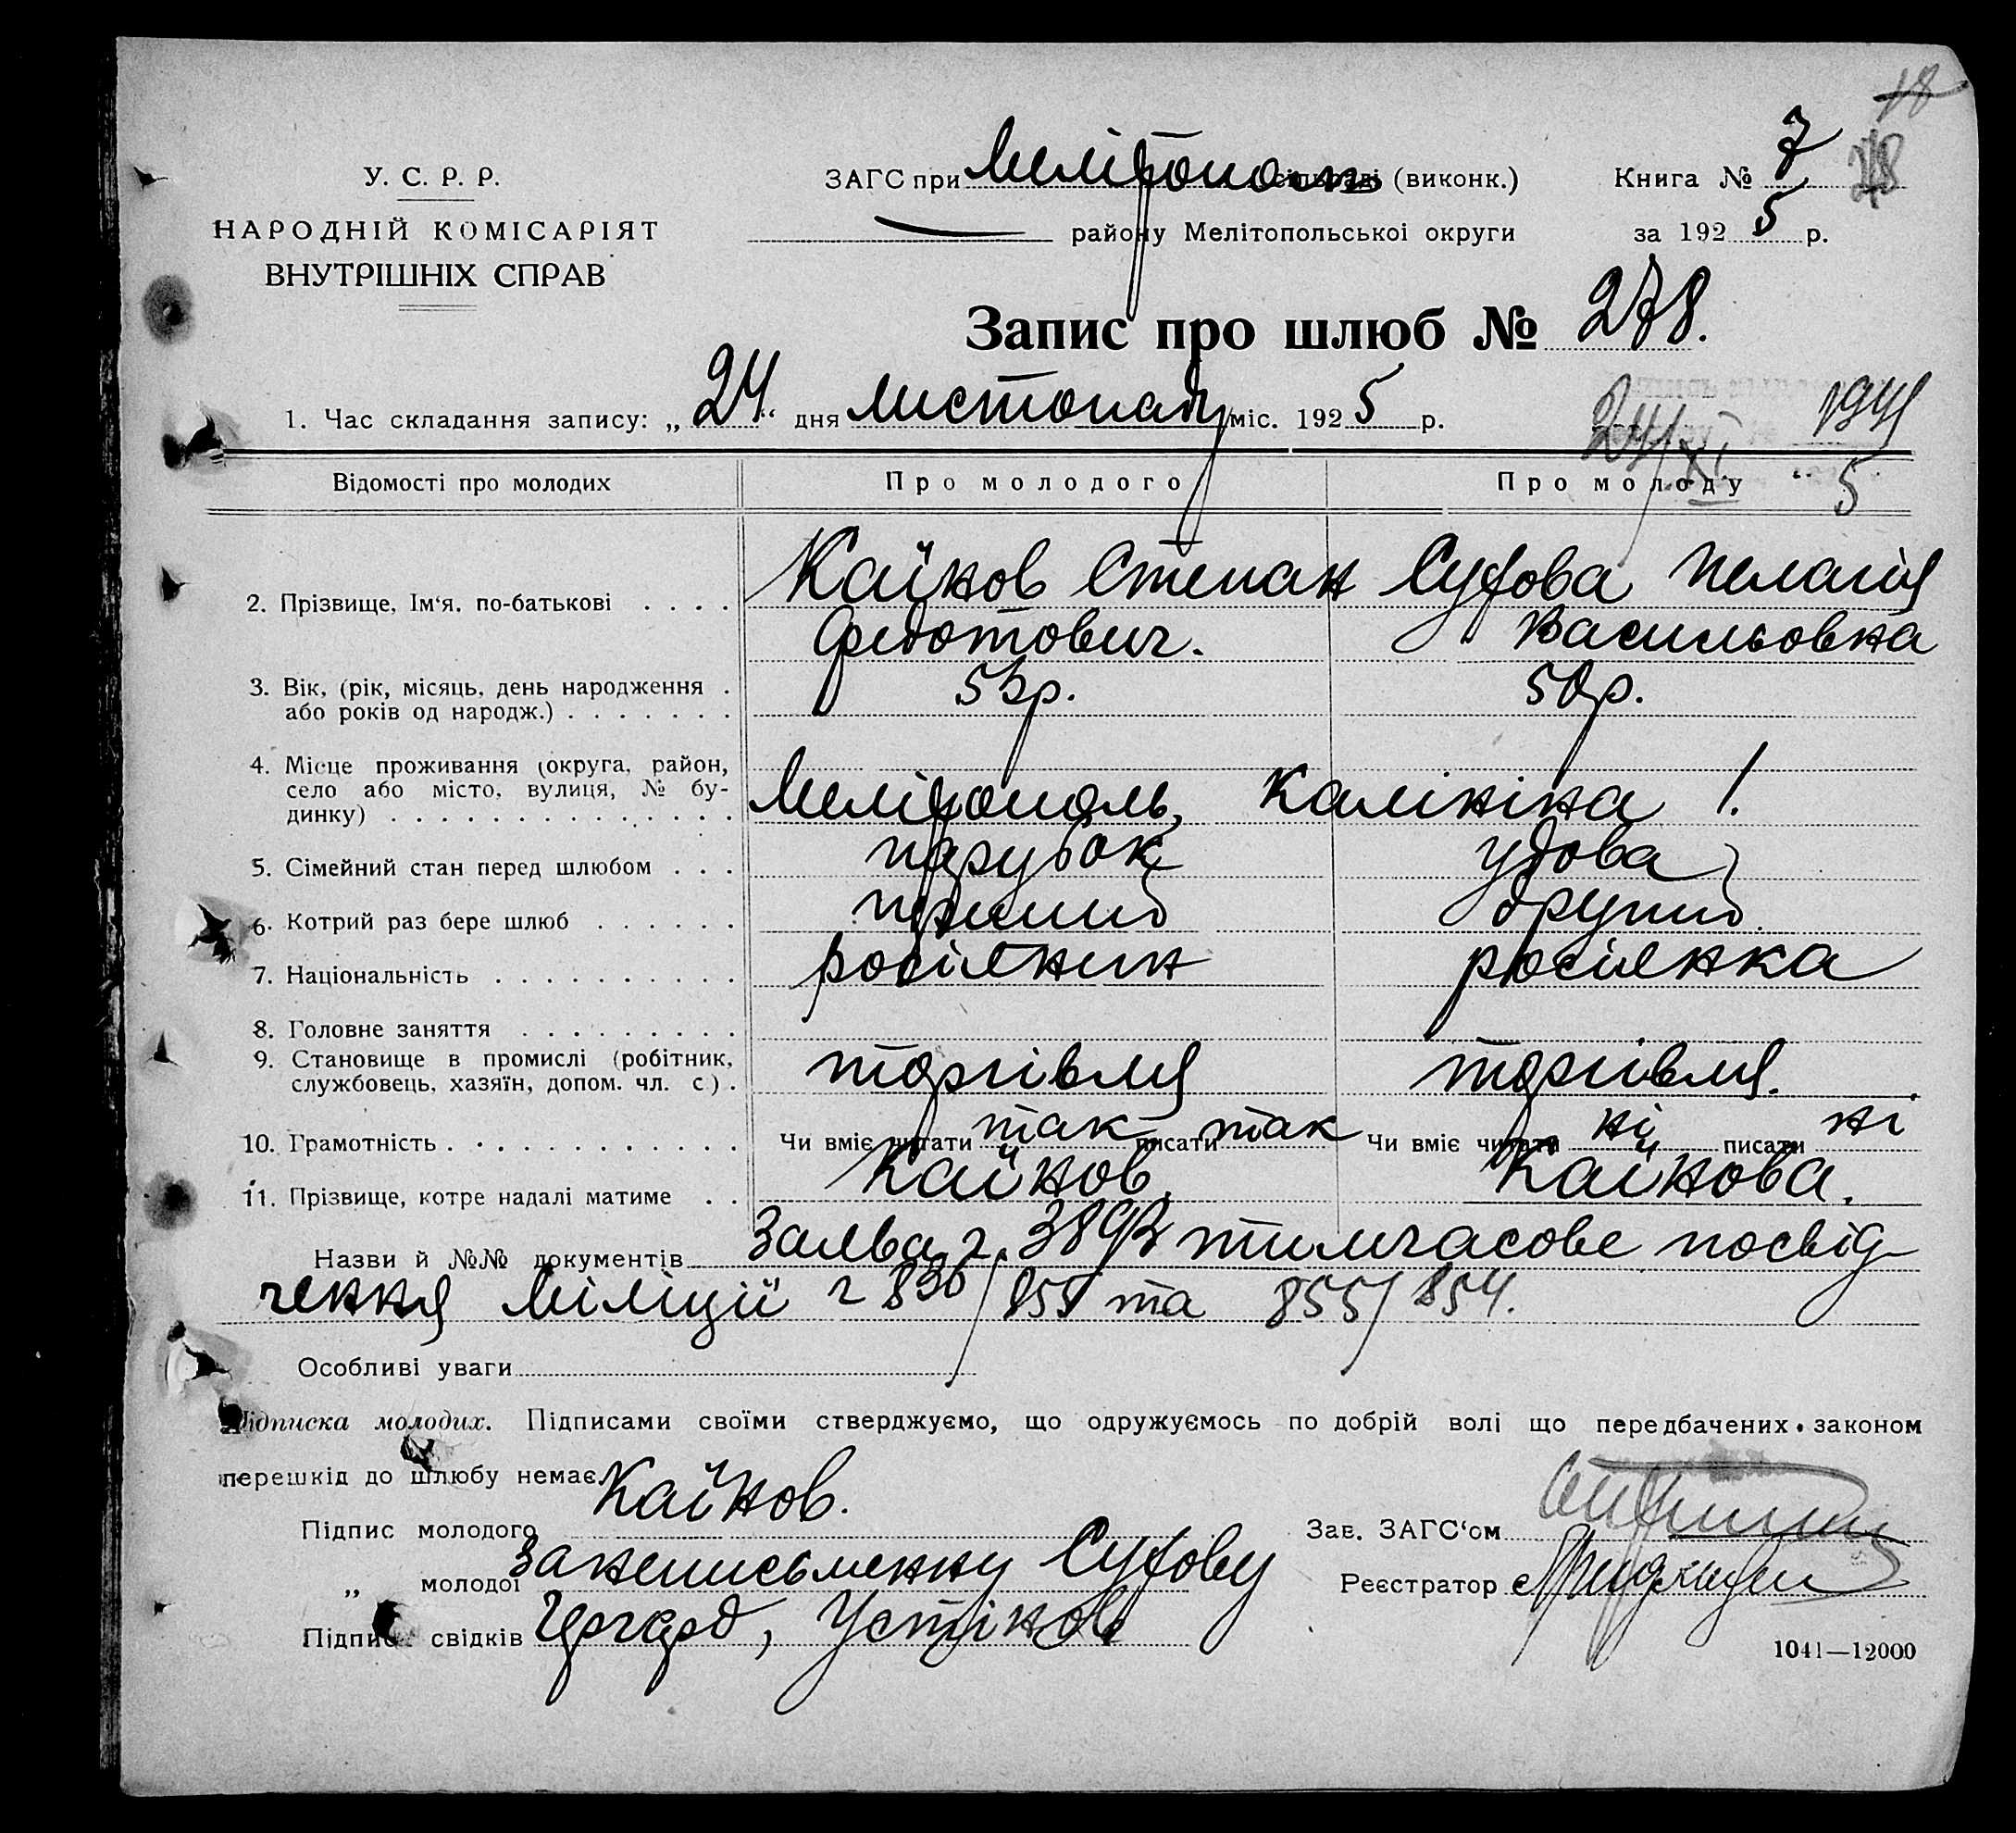 18
У. С. Р. Р.
НАРОДНІЙ КОМІСАРІЯТ
ВНУТРІШНІХ СПРАВ
ЗАГС при Мелітополь сільраді (виконк.)
району Мелітопольської округи
Книга № 7
за 1925 р.
Запис про шлюб № 278.
1. Час складання запису: „24“ дня листопаду міс. 1925 р.
24/XI 5
Відомості про молодих Про молодого Про молоду
2. Прізвище, Ім‘я, по-батькові . . . . Кайнов Степан Федотович. Сутова Пелагія Васильовна
3. Вік, (рік, місяць, день народження . або років од народж.) . . . . . . . 53р. 50р.
4. Місце проживання (округа, район, село або місто, вулиця, № будинку) . . . . . . . . . . . . . . . Мелітополь, Калініна 1.
5. Сімейний стан перед шлюбом . . . парубок удова
6. Котрий раз бере шлюб . . . . . . перший другий
7. Національність . . . . . . . . . . росіянин росіянка
8. Головне заняття . . . . . . . . .
9. Становище в промислі (робітник, службовець, хазяїн, допом. чл. с.) . торгівля торгівля.
10. Грамотність . . . . . . . . . . . Чи вміє читати так писати так Чи вміє читати ні писати ні
11. Прізвище, котре надалі матиме . . Кайнов. Кайнова.
Назви й №№ документів Заява ч. 3893 тимчасове посвід-
чення Міліції ч 856/855 та 855/854.
Особливі уваги
Підписка молодих. Підписами своїми стверджуємо, що одружуємось по добрій волі що передбачених законом
перешкід до шлюбу немає.
Підпис молодого Кайнов.
„ молодої За неписьменну Сутову
Підпис свідків Устінов
Зав. ЗАГС‘ом
Реєстратор
1041—12000